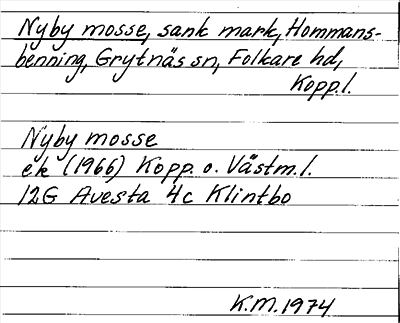 Nyby mosse, sank mark, Hommans-
benning, Grytnäs sn, Folkare hd,
Kopp. l.
Nyby mosse
ek (1966) Kopp. o. Västm. l.
12G Avesta 4c Klintbo
K.M. 1974